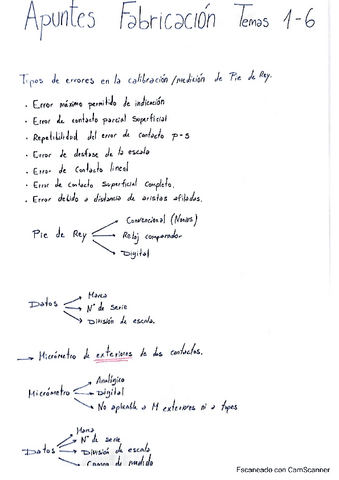 Apuntes Fabricación Temas 1-6
Tipos de errores en la calibración/medición de Pie de Rey.
· Error máximo permitido de indicación
· Error de contacto parcial superficial
· Repetibilidad del error de contacto p-s
· Error de desfase de la escala
· Error de contacto lineal
· Error de contacto superficial completo.
· Error debido a distancia de aristas afiladas.
Convencional (Nonius)
Pie de Rey Reloj comparador
Digital
Marca
Datos Nº de serie
División de escala.
→ Micrómetro de exteriores de dos contactos.
Analógico
Micrómetro Digital
No aplicable a M exteriores ni a topes
Marca
Nº de serie
Datos División de escala
Campo de medida
Escaneado con CamScanner